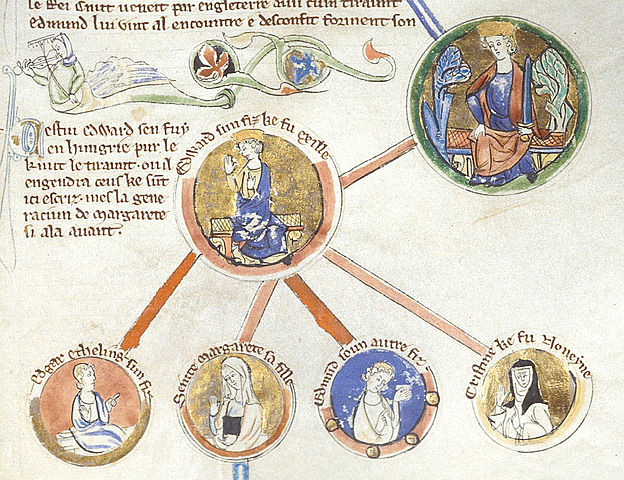 le Rei Cnut veneit par engleterre
edmund lui vint al encountre e desconfit forment son
Cestui edward sen fuy
en hungrie pur le
knut le tiraunt. ou il
engendra ceus ke sunt
ici escriz. mes la gene
raciun de margarete
si ala avant.
Edward sun fiz ke fu exille
Edgar etheling sun fiz
Seinte margarete sa fille
Edmund soun autre fiz
Cristine ke fu Noneyne